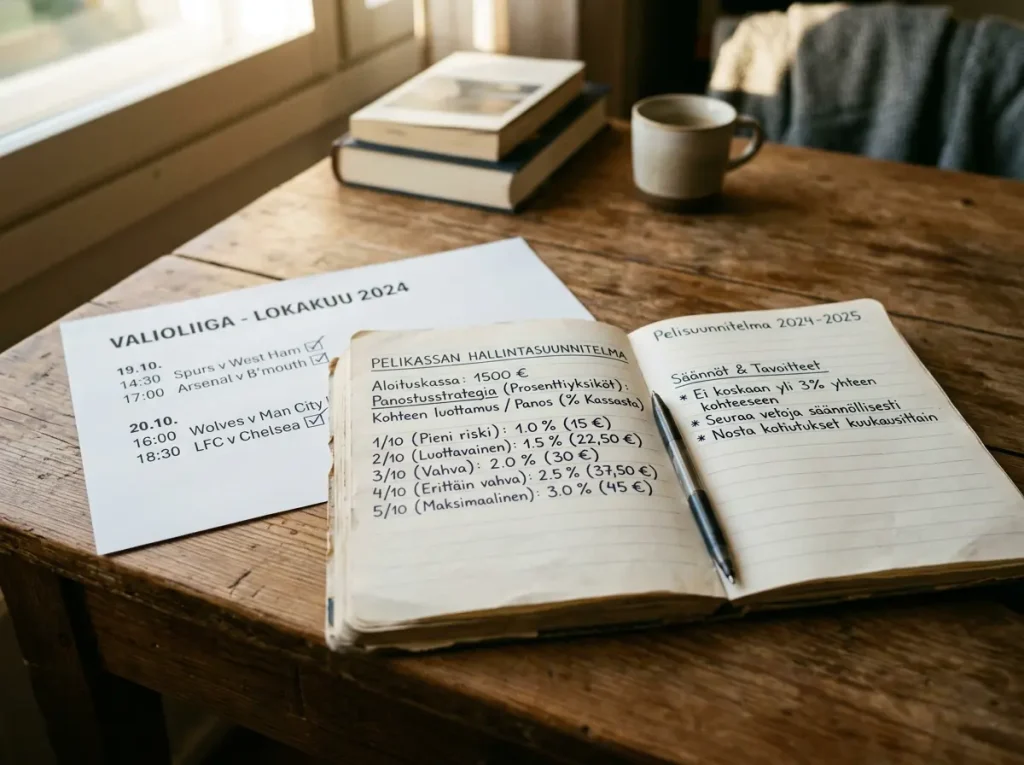 VALIOLIIGA - LOKAKUU 2024
19.10.
14:30 Spurs v West Ham ☑
17:00 Arsenal v B'mouth ☑
20.10.
16:00 Wolves v Man City
18:30 LFC v Chelsea ☑
PELIKASSAN HALLINTASUUNNITELMA
Aloituskassa: 1500 €
Panostusstrategia (Prosenttiyksiköt):
Kohteen luottamus / Panos (% Kassasta)
1/10 (Pieni riski): 1.0 % (15 €)
2/10 (Luottavainen): 1.5 % (22,50 €)
3/10 (Vahva): 2.0 % (30 €)
4/10 (Erittäin vahva): 2.5 % (37,50 €)
5/10 (Maksimaalinen): 3.0 % (45 €)
Pelisuunnitelma 2024-2025
Säännöt & Tavoitteet
* Ei koskaan yli 3% yhteen
kohteeseen
* Seuraa vetoja säännöllisesti
* Nosta kotiutukset kuukausittain